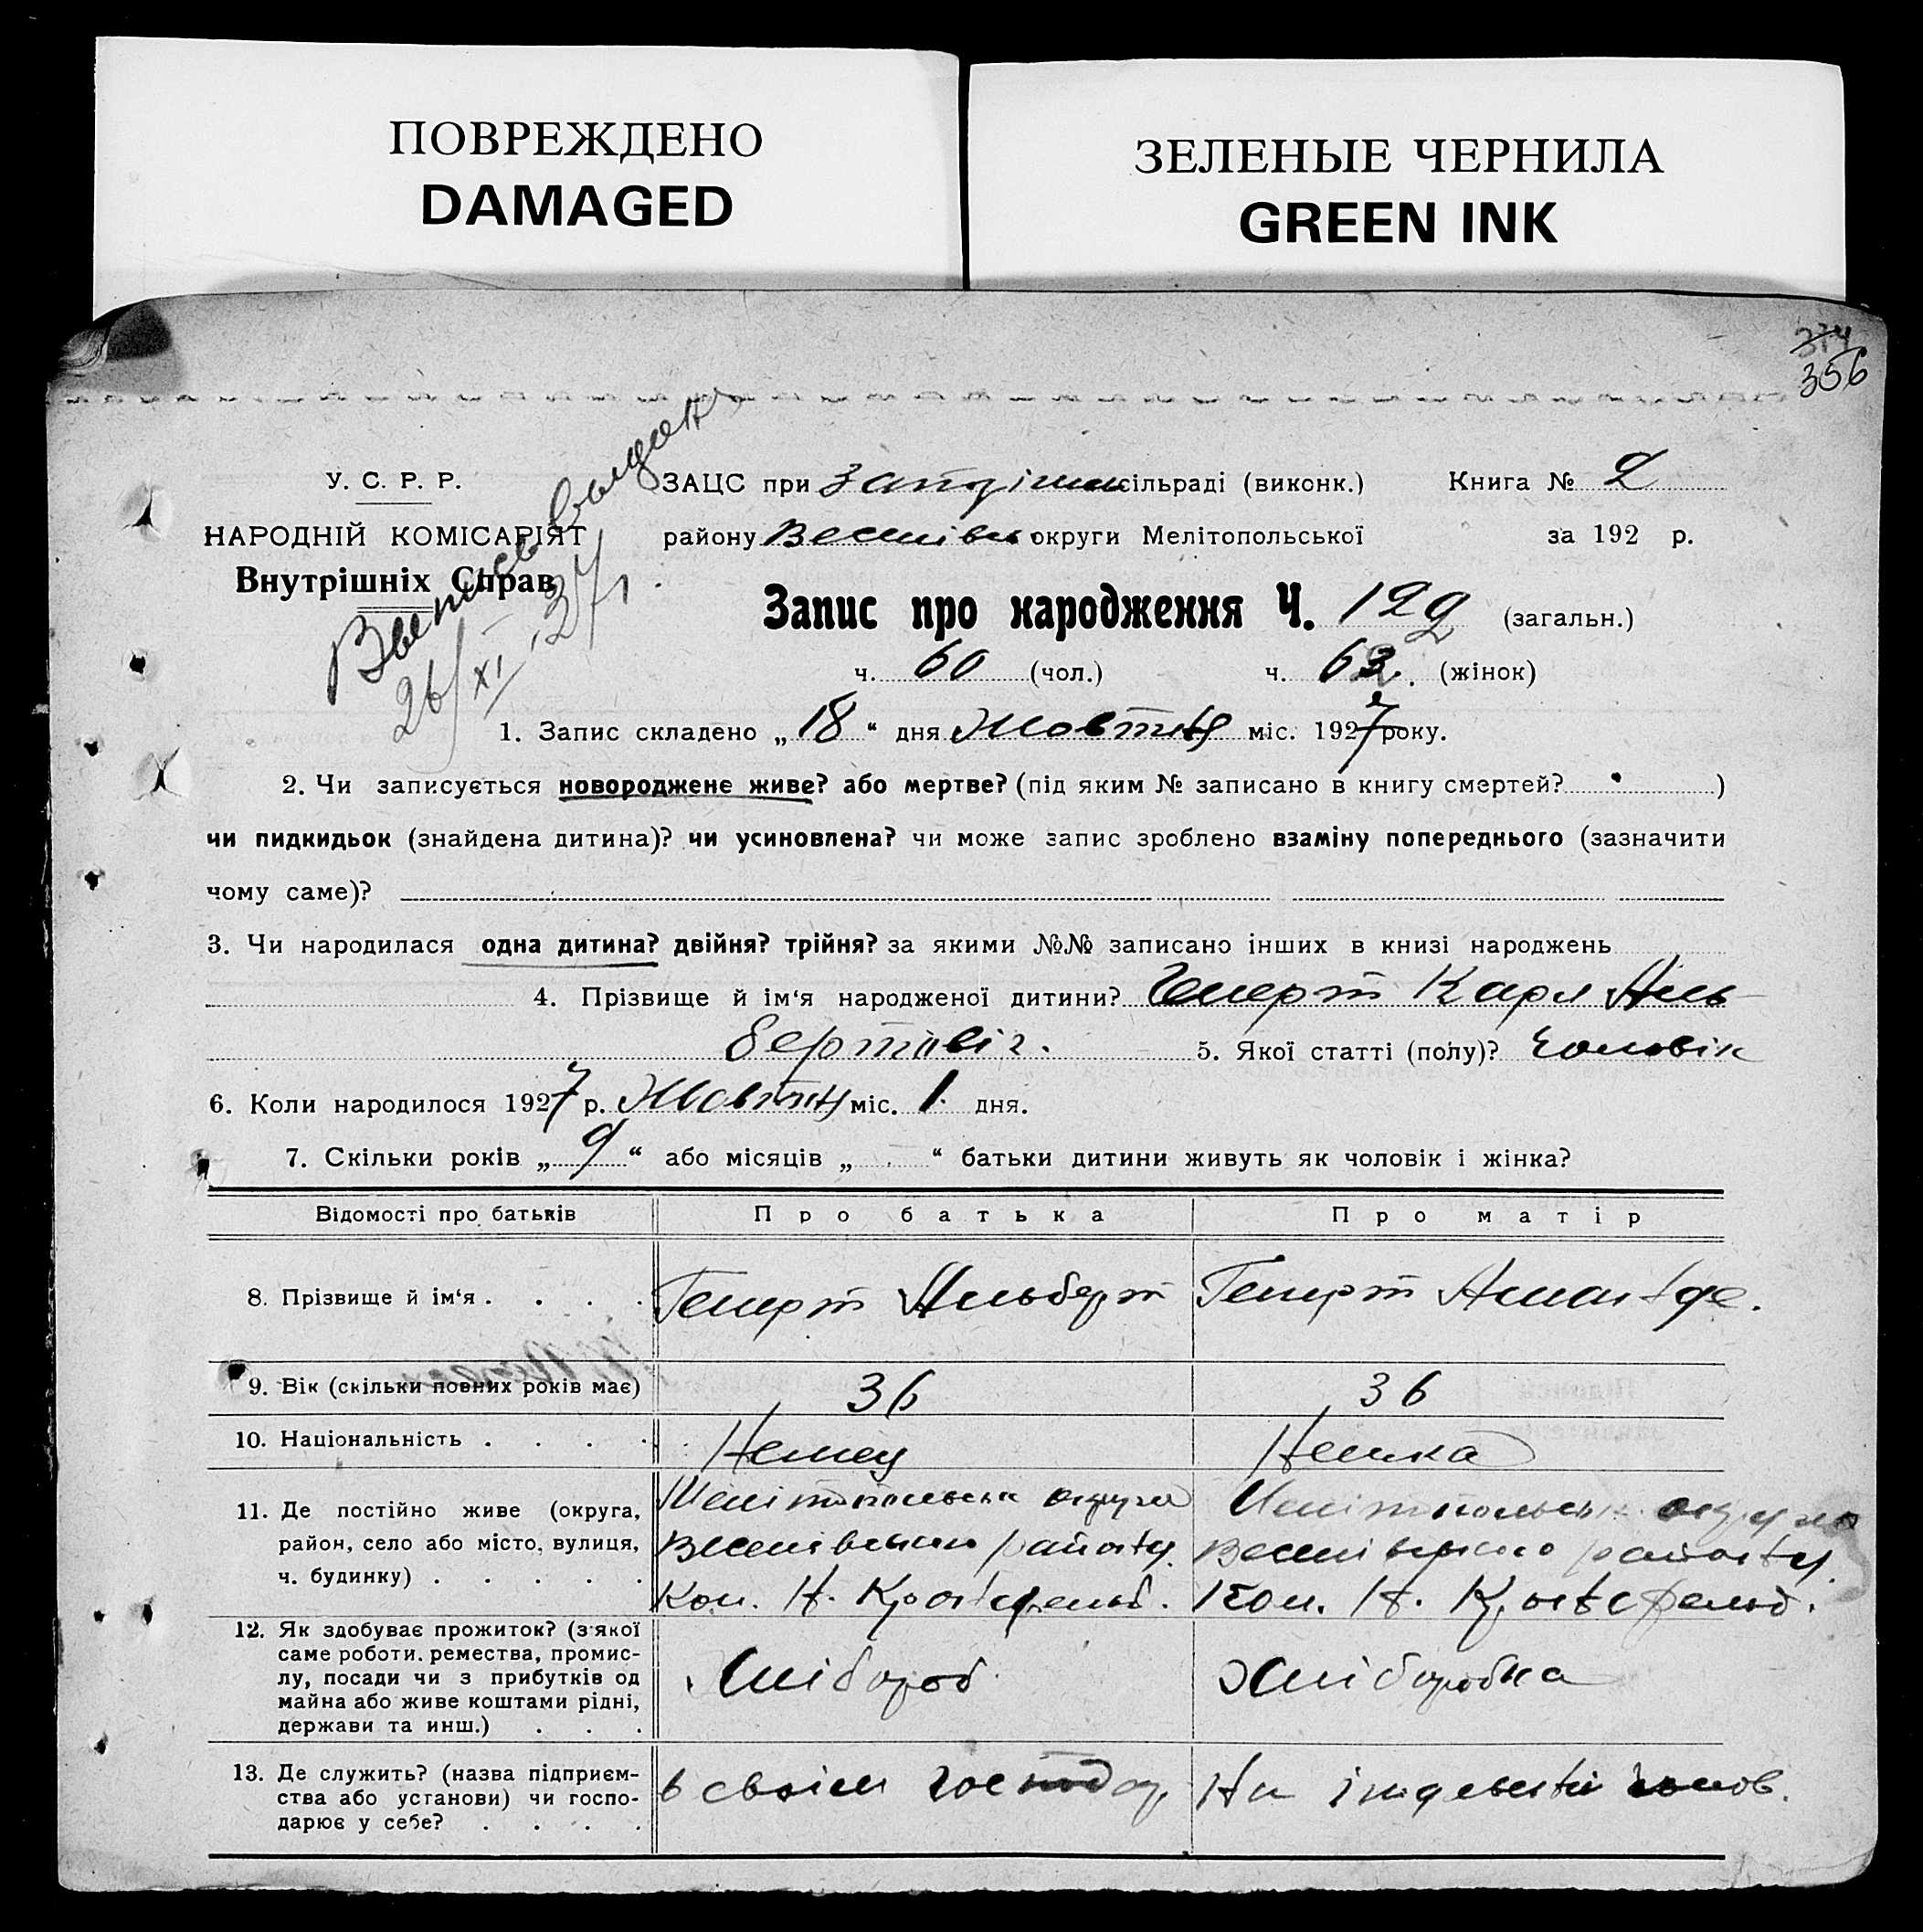 ПОВРЕЖДЕНО
DAMAGED
ЗЕЛЕНЫЕ ЧЕРНИЛА
GREEN INK
374
356
Выпись выдан
26/XI 37 г.
У. С. Р. Р.
НАРОДНІЙ КОМІСАРІЯТ
Внутрішніх Справ
ЗАЦС при сільраді (виконк.) Книга № 2
району округи Мелітопольської за 192 р.
Запис про народження Ч. 122 (загальн.)
ч. 60 (чол.) ч. 62. (жінок)
1. Запис складено „ 18 “ дня Жовтня міс. 1927 року.
2. Чи записується новороджене живе? або мертве? (під яким № записано в книгу смертей? )
чи пидкидьок (знайдена дитина)? чи усиновлена? чи може запис зроблено взаміну попереднього (зазначити
чому саме)?
3. Чи народилася одна дитина? двійня? трійня? за якими №№ записано інших в книзі народжень
4. Прізвище й ім‘я народженої дитини? Геперт Карл Аль-
бертовіч. 5. Якої статті (полу)? Чоловік
6. Коли народилося 1927 р. Жовтня міс. 1. дня.
7. Скільки років „ 9 “ або місяців „ “ батьки дитини живуть як чоловік і жінка?
Відомості про батьків Про батька Про матір
8. Прізвище й ім‘я . . . . Геперт Альберт Геперт Аманде.
9. Вік (скільки повних років має) 36 36
10. Національність . . . . Немец Немка
11. Де постійно живе (округа, Мелітопольська округа Мелітопольськ округа
район, село або місто, вулиця, Веселівського району Веселівського району.
ч. будинку) . . . . . Кол. Н. Кронсфельд. Кол. Н. Кронсфельд.
12. Як здобуває прожиток? (з якої
саме роботи, ремества, промис-
лу, посади чи з прибутків од Хлібороб Хліборобка
майна або живе коштами рідні,
держави та инш.) . . .
13. Де служить? (назва підприєм- в своім господар. На іждевені
ства або установи) чи госпо-
дарює у себе? . . . .